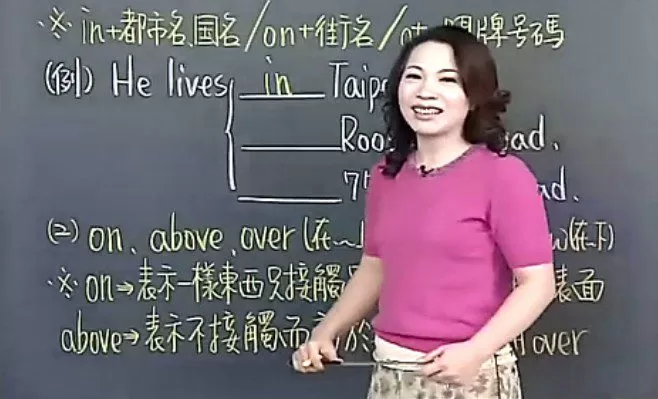 ※ in+都市名、国名/on+街名/ 門牌号碼
(例) He lives in
ad.
ad.
(二) on、above、over(在 (在下)
※ on→表示一樣東西只接觸 表面
above→表示不接觸,而 於 over